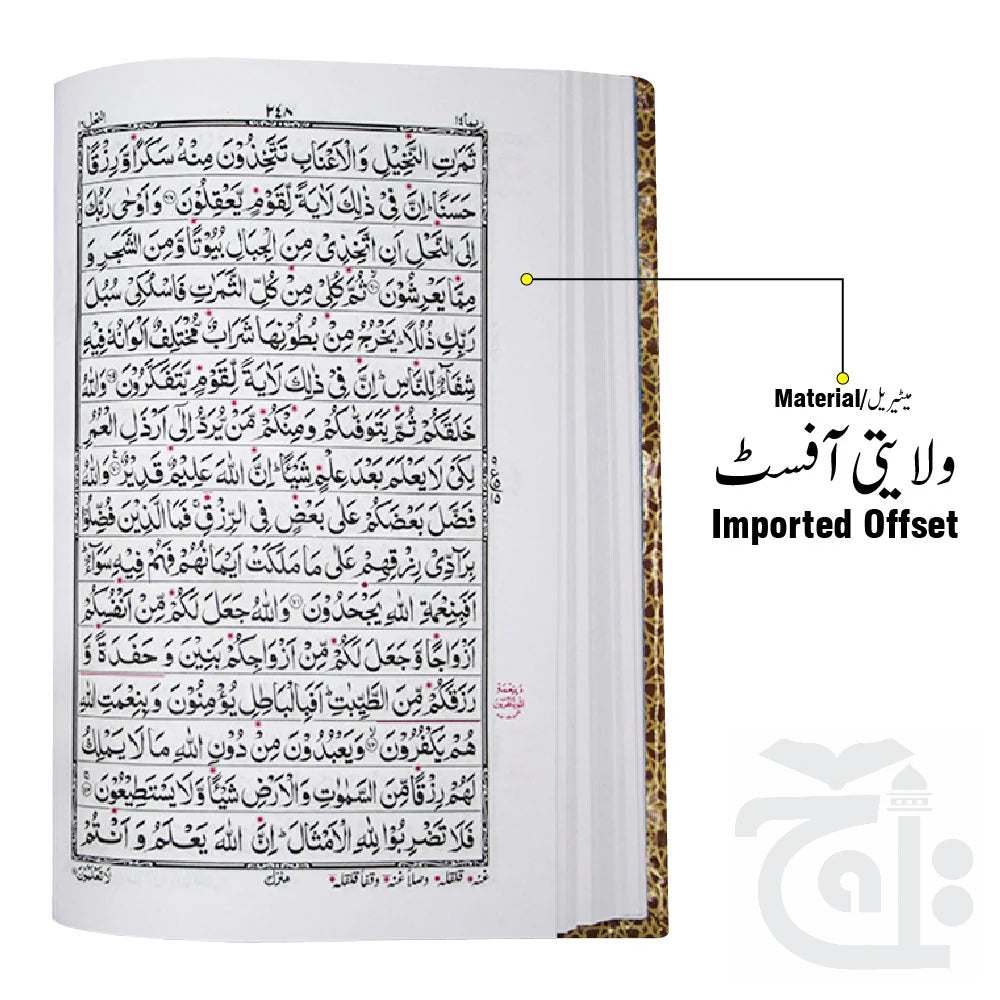 ربما ١٤ ٢٤٨ النحل ١٦
ثَمَرٰتِ النَّخِیْلِ وَ الْاَعْنَابِ تَتَّخِذُوْنَ مِنْهُ سَكَرًا وَّ رِزْقًا
حَسَنًاؕ اِنَّ فِیْ ذٰلِكَ لَاٰیَةً لِّقَوْمٍ یَّعْقِلُوْنَ ﴿۶۷﴾ وَ اَوْحٰى رَبُّكَ
اِلَى النَّحْلِ اَنِ اتَّخِذِیْ مِنَ الْجِبَالِ بُیُوْتًا وَّ مِنَ الشَّجَرِ وَ
مِمَّا یَعْرِشُوْنَ ﴿۶۸﴾ ثُمَّ كُلِیْ مِنْ كُلِّ الثَّمَرٰتِ فَاسْلُكِیْ سُبُلَ
رَبِّكِ ذُلُلًاؕ یَخْرُجُ مِنْۢ بُطُوْنِهَا شَرَابٌ مُّخْتَلِفٌ اَلْوَانُهٗ فِیْهِ
شِفَآءٌ لِّلنَّاسِؕ اِنَّ فِیْ ذٰلِكَ لَاٰیَةً لِّقَوْمٍ یَّتَفَكَّرُوْنَ ﴿۶۹﴾ وَ اللّٰهُ
خَلَقَكُمْ ثُمَّ یَتَوَفّٰىكُمْ وَ مِنْكُمْ مَّنْ یُّرَدُّ اِلٰۤى اَرْذَلِ الْعُمُرِ
لِكَیْ لَا یَعْلَمَ بَعْدَ عِلْمٍ شَیْـًٔاؕ اِنَّ اللّٰهَ عَلِیْمٌ قَدِیْرٌ ﴿۷۰﴾ وَ اللّٰهُ
فَضَّلَ بَعْضَكُمْ عَلٰى بَعْضٍ فِی الرِّزْقِۚ فَمَا الَّذِیْنَ فُضِّلُوْا
بِرَآدِّیْ رِزْقِهِمْ عَلٰى مَا مَلَكَتْ اَیْمَانُهُمْ فَهُمْ فِیْهِ سَوَآءٌؕ
اَفَبِنِعْمَةِ اللّٰهِ یَجْحَدُوْنَ ﴿۷۱﴾ وَ اللّٰهُ جَعَلَ لَكُمْ مِّنْ اَنْفُسِكُمْ
اَزْوَاجًا وَّ جَعَلَ لَكُمْ مِّنْ اَزْوَاجِكُمْ بَنِیْنَ وَ حَفَدَةً وَّ
رَزَقَكُمْ مِّنَ الطَّیِّبٰتِؕ اَفَبِالْبَاطِلِ یُؤْمِنُوْنَ وَ بِنِعْمَتِ اللّٰهِ
هُمْ یَكْفُرُوْنَ ﴿۷۲﴾ وَ یَعْبُدُوْنَ مِنْ دُوْنِ اللّٰهِ مَا لَا یَمْلِكُ
لَهُمْ رِزْقًا مِّنَ السَّمٰوٰتِ وَ الْاَرْضِ شَیْـًٔا وَّ لَا یَسْتَطِیْعُوْنَ ﴿۷۳﴾
فَلَا تَضْرِبُوْا لِلّٰهِ الْاَمْثَالَؕ اِنَّ اللّٰهَ یَعْلَمُ وَ اَنْتُمْ
غنه قلقله وصلا غنه وقفا قلقله منزل ٣ لَا تَعْلَمُوْنَ
Material/میٹیریل
ولایتی آفسٹ
Imported Offset